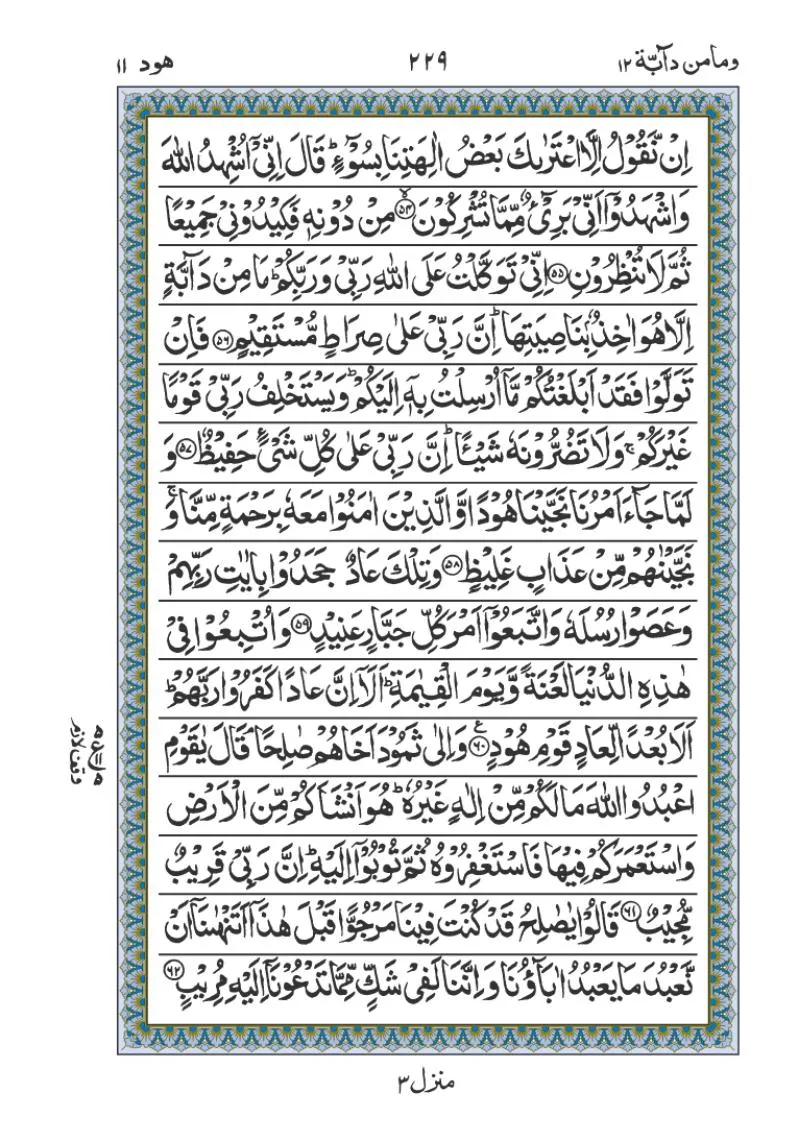 وما من دآبّة ١٢
٢٢٩
هود ١١
اِنْ نَّقُوْلُ اِلَّا اعْتَرٰىكَ بَعْضُ اٰلِهَتِنَا بِسُوْٓءٍ ؕ قَالَ اِنِّیْۤ اُشْهِدُ اللّٰهَ
وَاشْهَدُوْۤا اَنِّیْ بَرِیْٓءٌ مِّمَّا تُشْرِكُوْنَ ۙ﴿۵۴﴾ مِنْ دُوْنِهٖ فَكِیْدُوْنِیْ جَمِیْعًا
ثُمَّ لَا تُنْظِرُوْنِ ﴿۵۵﴾ اِنِّیْ تَوَكَّلْتُ عَلَی اللّٰهِ رَبِّیْ وَرَبِّكُمْ ؕ مَا مِنْ دَآبَّةٍ
اِلَّا هُوَ اٰخِذٌۢ بِنَاصِیَتِهَا ؕ اِنَّ رَبِّیْ عَلٰی صِرَاطٍ مُّسْتَقِیْمٍ ﴿۵۶﴾ فَاِنْ
تَوَلَّوْا فَقَدْ اَبْلَغْتُكُمْ مَّاۤ اُرْسِلْتُ بِهٖۤ اِلَیْكُمْ ؕ وَیَسْتَخْلِفُ رَبِّیْ قَوْمًا
غَیْرَكُمْ ۚ وَلَا تَضُرُّوْنَهٗ شَیْـًٔا ؕ اِنَّ رَبِّیْ عَلٰی كُلِّ شَیْءٍ حَفِیْظٌ ﴿۵۷﴾ وَ
لَمَّا جَآءَ اَمْرُنَا نَجَّیْنَا هُوْدًا وَّالَّذِیْنَ اٰمَنُوْا مَعَهٗ بِرَحْمَةٍ مِّنَّا ۚ وَ
نَجَّیْنٰهُمْ مِّنْ عَذَابٍ غَلِیْظٍ ﴿۵۸﴾ وَتِلْكَ عَادٌ ۙ جَحَدُوْا بِاٰیٰتِ رَبِّهِمْ
وَعَصَوْا رُسُلَهٗ وَاتَّبَعُوْۤا اَمْرَ كُلِّ جَبَّارٍ عَنِیْدٍ ﴿۵۹﴾ وَاُتْبِعُوْا فِیْ
هٰذِهِ الدُّنْیَا لَعْنَةً وَّیَوْمَ الْقِیٰمَةِ ؕ اَلَاۤ اِنَّ عَادًا كَفَرُوْا رَبَّهُمْ ؕ
اَلَا بُعْدًا لِّعَادٍ قَوْمِ هُوْدٍ ﴿۶۰﴾ وَاِلٰی ثَمُوْدَ اَخَاهُمْ صٰلِحًا ۘ قَالَ یٰقَوْمِ
اعْبُدُوا اللّٰهَ مَا لَكُمْ مِّنْ اِلٰهٍ غَیْرُهٗ ؕ هُوَ اَنْشَاَكُمْ مِّنَ الْاَرْضِ
وَاسْتَعْمَرَكُمْ فِیْهَا فَاسْتَغْفِرُوْهُ ثُمَّ تُوْبُوْۤا اِلَیْهِ ؕ اِنَّ رَبِّیْ قَرِیْبٌ
مُّجِیْبٌ ﴿۶۱﴾ قَالُوْا یٰصٰلِحُ قَدْ كُنْتَ فِیْنَا مَرْجُوًّا قَبْلَ هٰذَاۤ اَتَنْهٰىنَاۤ اَنْ
نَّعْبُدَ مَا یَعْبُدُ اٰبَآؤُنَا وَاِنَّنَا لَفِیْ شَكٍّ مِّمَّا تَدْعُوْنَاۤ اِلَیْهِ مُرِیْبٍ ﴿۶۲﴾
وقف لازم
منزل ٣